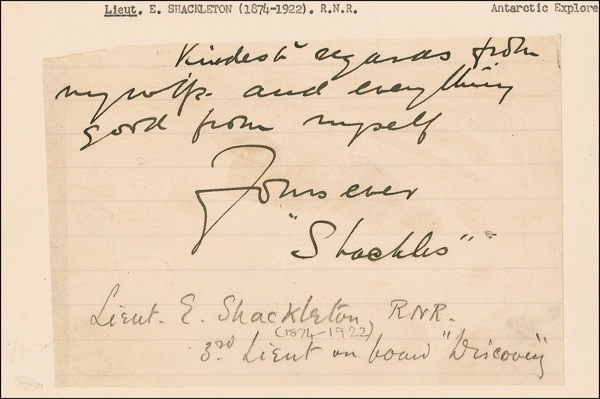 Lieut. E. SHACKLETON (1874-1922). R.N.R. Antarctic Explore
Kindest regards from
my wife and everything
good from myself
Yours ever
"Shackles"
Lieut. E. Shackleton, RNR.
(1874-1922)
3rd Lieut on board "Discovery"